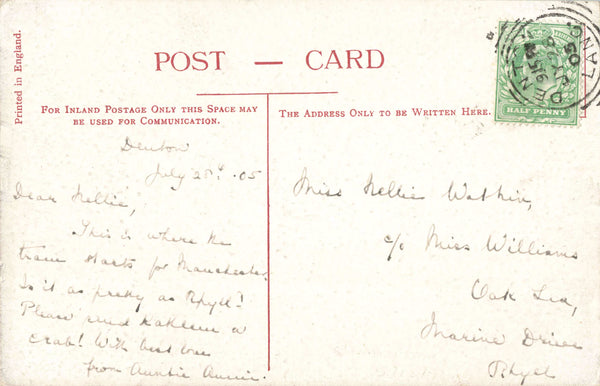 Printed in England.
POST — CARD
FOR INLAND POSTAGE ONLY THIS SPACE MAY
BE USED FOR COMMUNICATION.
THE ADDRESS ONLY TO BE WRITTEN HERE.
HALF PENNY
DENT
LANC
05
Denton
July 28th. 05
Dear Nellie,
This is where the
train starts for Manchester.
Is it as pretty as Rhyl?
Please send Kathleen a
crab! With best love
from Auntie Annie.
Miss Nellie Watkin,
c/o Miss Williams
Oak Lea,
Marine Drive
Rhyl